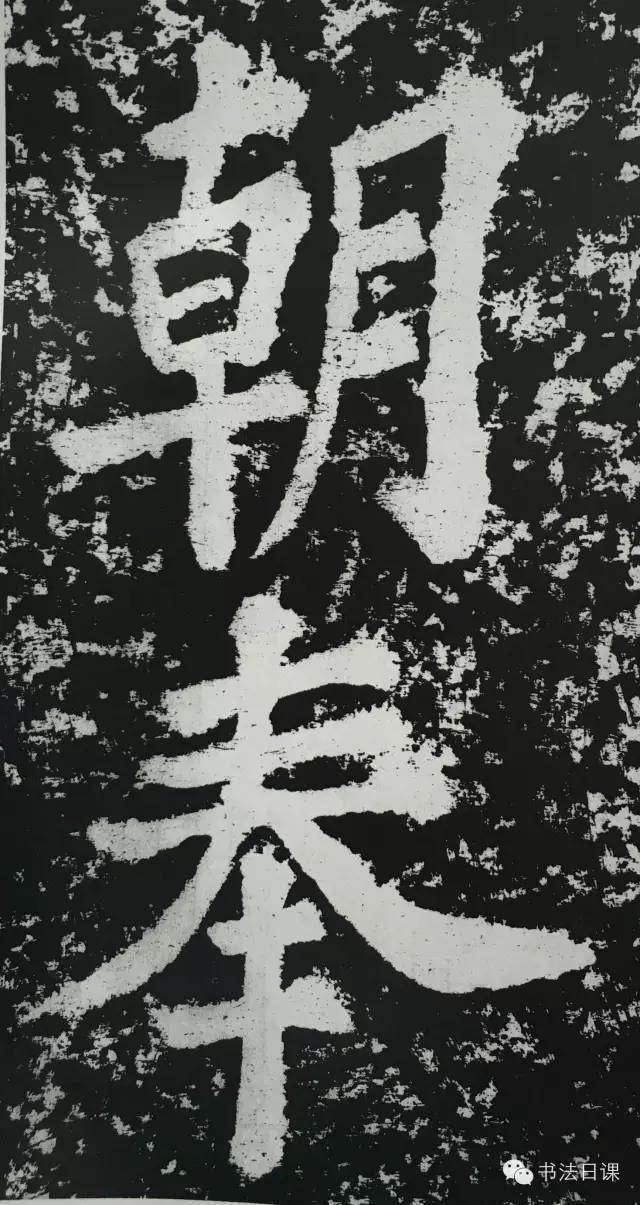 朝
奉
书法日课